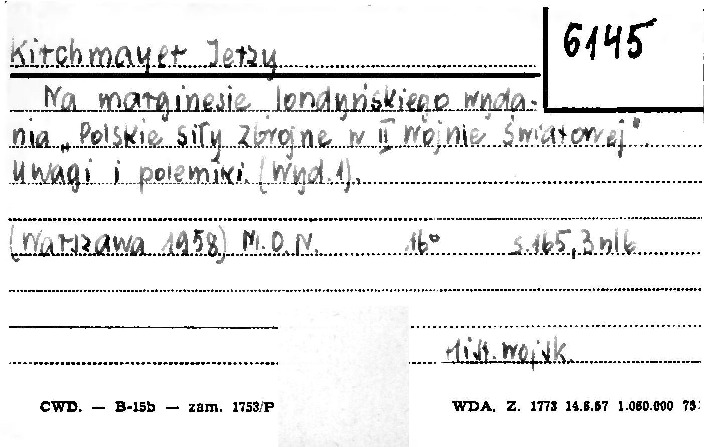 6145
Kirchmayer Jerzy
Na marginesie londyńskiego wyda-
nia „Polskie siły zbrojne w II wojnie światowej".
Uwagi i polemiki. (Wyd. 1).
(Warszawa 1958) M.O.N. 16° s. 165, 3 nlb
Hist. wojsk.
CWD. — B-15b — zam. 1753/P
WDA. Z. 1773 14.6.57 1.060.000 75